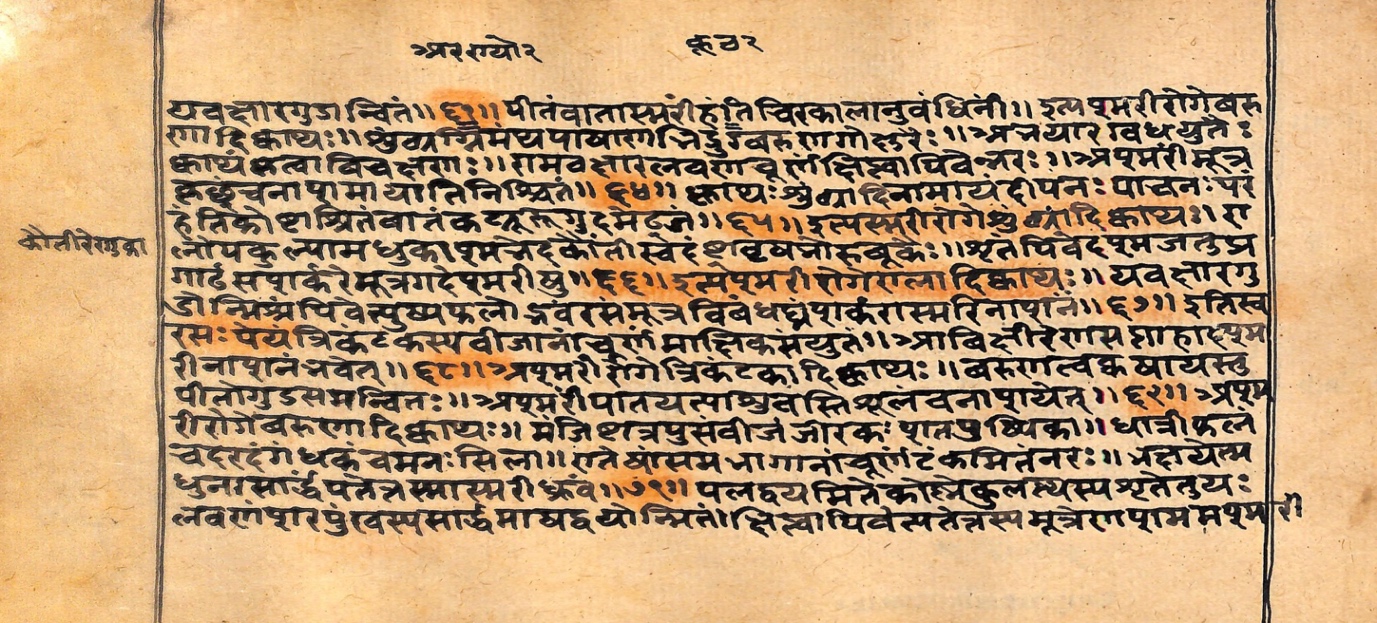 यवक्षारगुडान्वितं॥६१॥पीतंवातास्मरीहंतिचिरकालानुबंधिनीं॥इत्यश्मरीरोगेवरु
णादिक्वाथः॥शुंठ्यग्निमंथपाषाणभिदुर्गवरुणगोक्षुरैः॥अभयारग्वधयुतैः
क्वाथंकृत्वाविचक्षणः॥रामठक्षारलवणचूर्णंक्षिप्त्वापिवेन्नरः॥अश्मरीमूत्र
कृछ्रंचनाशमायातिनिश्चितं॥६४॥क्वाथःशुंठ्यादिनामायंदीपनःपाचनःपरं
हंतिकोष्टाश्रितंवातंकट्यूरुगुदमेढ्रजं॥६५॥इत्यस्मरीरोगेशुंठ्यादिक्वाथः॥ए
लोपकुल्यामधुकाश्मभेदकौंतीस्वदंष्ट्रावृषभोरुवूकैः॥शृतंपिवेदश्मजतुप्र
कौंतीरेणुका
गाढंसशर्करंमूत्रगदेश्मरीषु॥६६॥इत्यश्मरीरोगेएलादिक्वाथः॥यवक्षारगु
डोन्मिश्रंपिवेत्पुष्पफलोद्भवंरसंमूत्रविबंधघ्नंशर्करास्मरिनाशनं॥६७॥इतिस्व
रसःपेयंत्रिकंटकस्यवीजानांचूर्णंमाक्षिकसंयुतं॥आविक्षीरेणसप्ताहादश्म
रीनाशनंभवेत्॥६८॥अश्मरीरोगेत्रिकंटकादिक्वाथः॥वरुणत्वक्कषायस्तु
पीतोगुडसमन्वितः॥अश्मरींपातयत्याशुवस्तिशूलंचनाशयेत्॥६९॥अश्म
रीरोगेवरुणादिक्वाथः॥मंजिष्टात्रपुसंवीजंजीरकःशतपुष्पिका॥धात्रीफलं
चदरदंगंधकंचमनःसिला॥एतेषांसमभागानांचूर्णंटंकमितंनरः॥भक्षयेत्म
धुनासार्द्धंपतेत्तस्मास्मरीध्रुवं॥७१॥पलद्वयमितेकोष्णेकुलस्थिस्यशृतेतुयः
लवणंशरपुंखस्यसार्द्धमाषद्वयोन्मितं॥क्षिप्त्वापिवेत्पतेत्तस्यमूत्रेणशममश्मरी